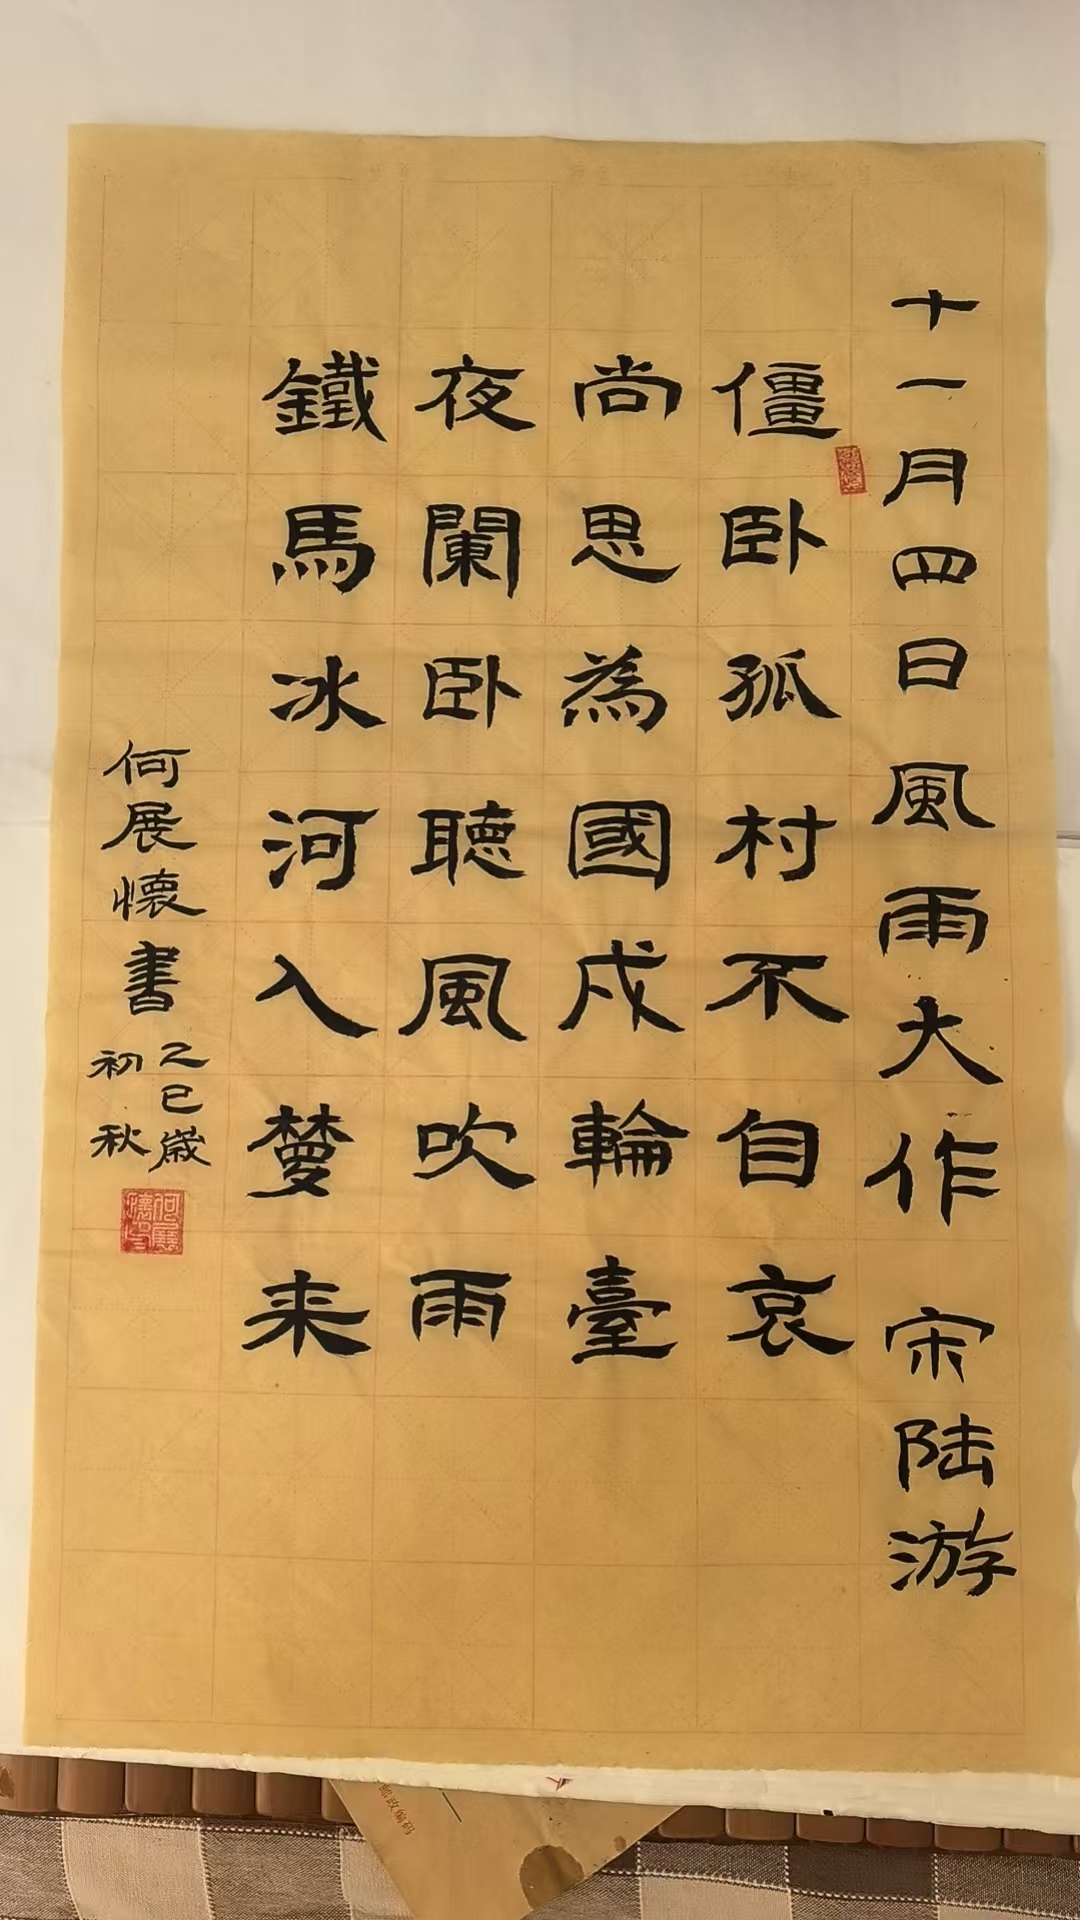 十一月四日風雨大作 宋陆游
僵卧孤村不自哀
尚思為國戍輪臺
夜闌卧聴風吹雨
鐵馬冰河入夢来
何展懷書
乙巳歲
初秋
何展懷印
邮政编码